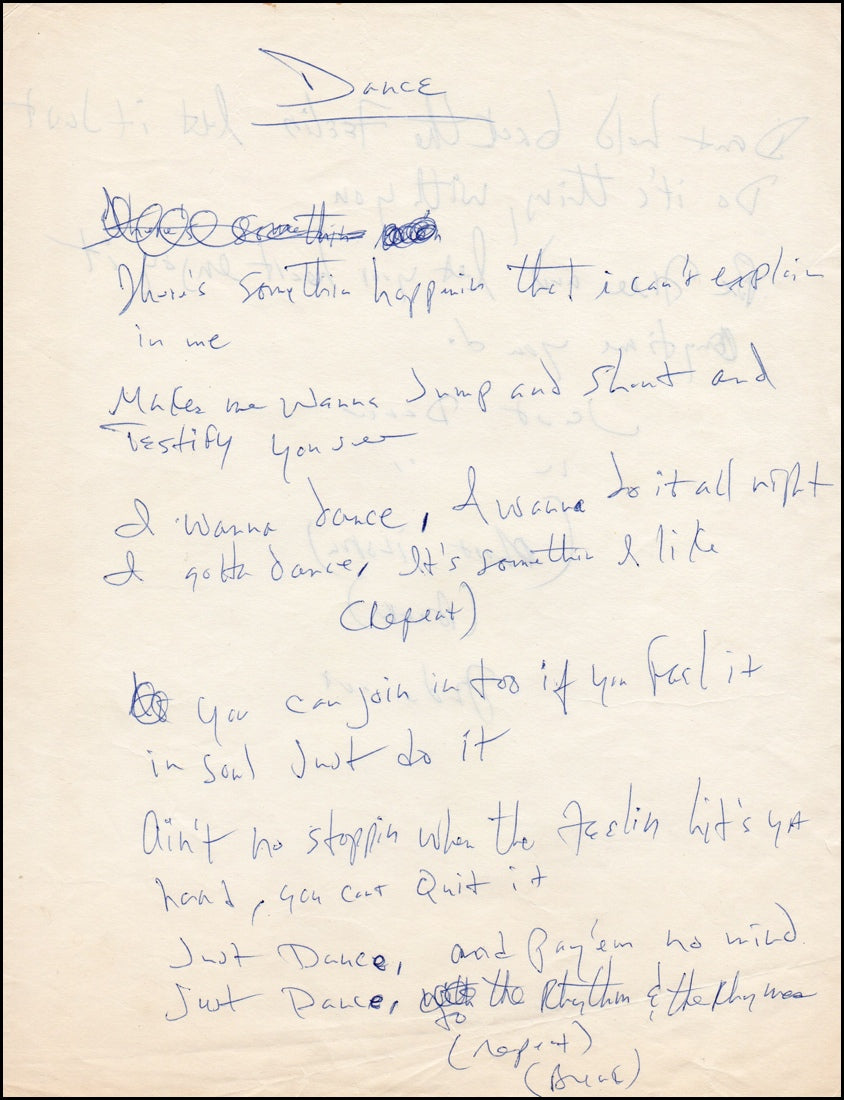 Dance
There's somethin
There's somethin happenin that i can't explain
in me
Makes me wanna Jump and shout and
Testify you see
I wanna dance, I wanna do it all night
I gotta dance, It's somethin I like
(Repeat)
you can join in too if you feel it
in soul Just do it
Ain't no stoppin when the Feelin hit's ya
hard, you cant Quit it
Just Dance, and Pay'em no mind
Just Dance, to the Rhythm & the Rhymes
(repeat)
(Break)